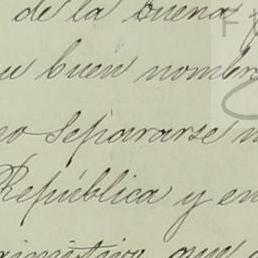 de la buena
su buen nombre
no separarse
República y en
que